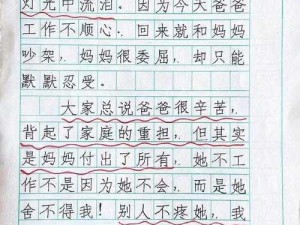 灯光中流泪。因为今天爸爸
工作不顺心，回来就和妈妈
吵架，妈妈很委屈，却只能
默默忍受。
大家总说爸爸很辛苦，
背起了家庭的重担，但其实
是妈妈付出了所有，她不工
作不是因为她不会，而是她
舍不得我！别人不疼她，我